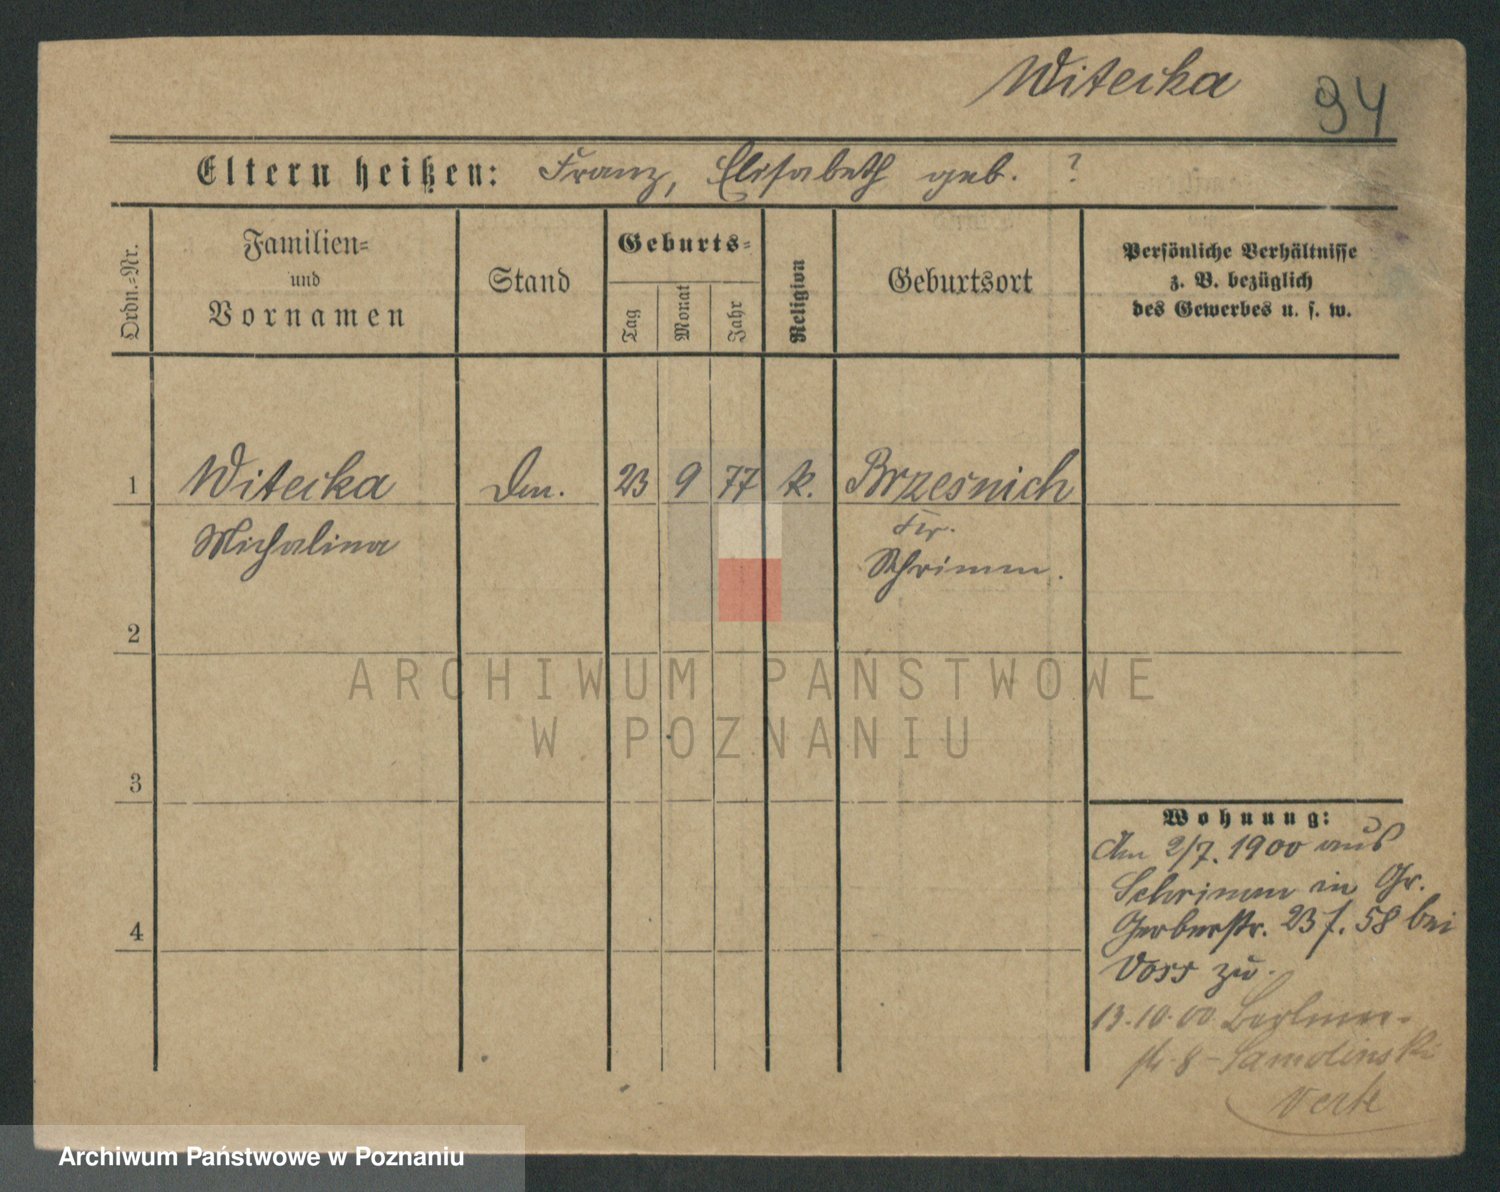 Witecka 94
Eltern heißen: Franz, Elisabeth geb. ?
Ordn.-Nr.
Familien-
und
Vornamen
Stand
Geburts-
Tag
Monat
Jahr
Religion
Geburtsort
Persönliche Verhältnisse
z. B. bezüglich
des Gewerbes u. s. w.
1 Witecka 23 9 77 k. Brzesnich
Michalina Kr.
Schrimm.
2
3
4
Wohnung:
Am 2/7. 1900 aus
Schrimm in Gr.
Gerberstr. 23 f. 58 bei
Voss zu.
13.10.00 Berliner-
str. 8 - Samolinski
ARCHIWUM PAŃSTWOWE
W POZNANIU
Archiwum Państwowe w Poznaniu